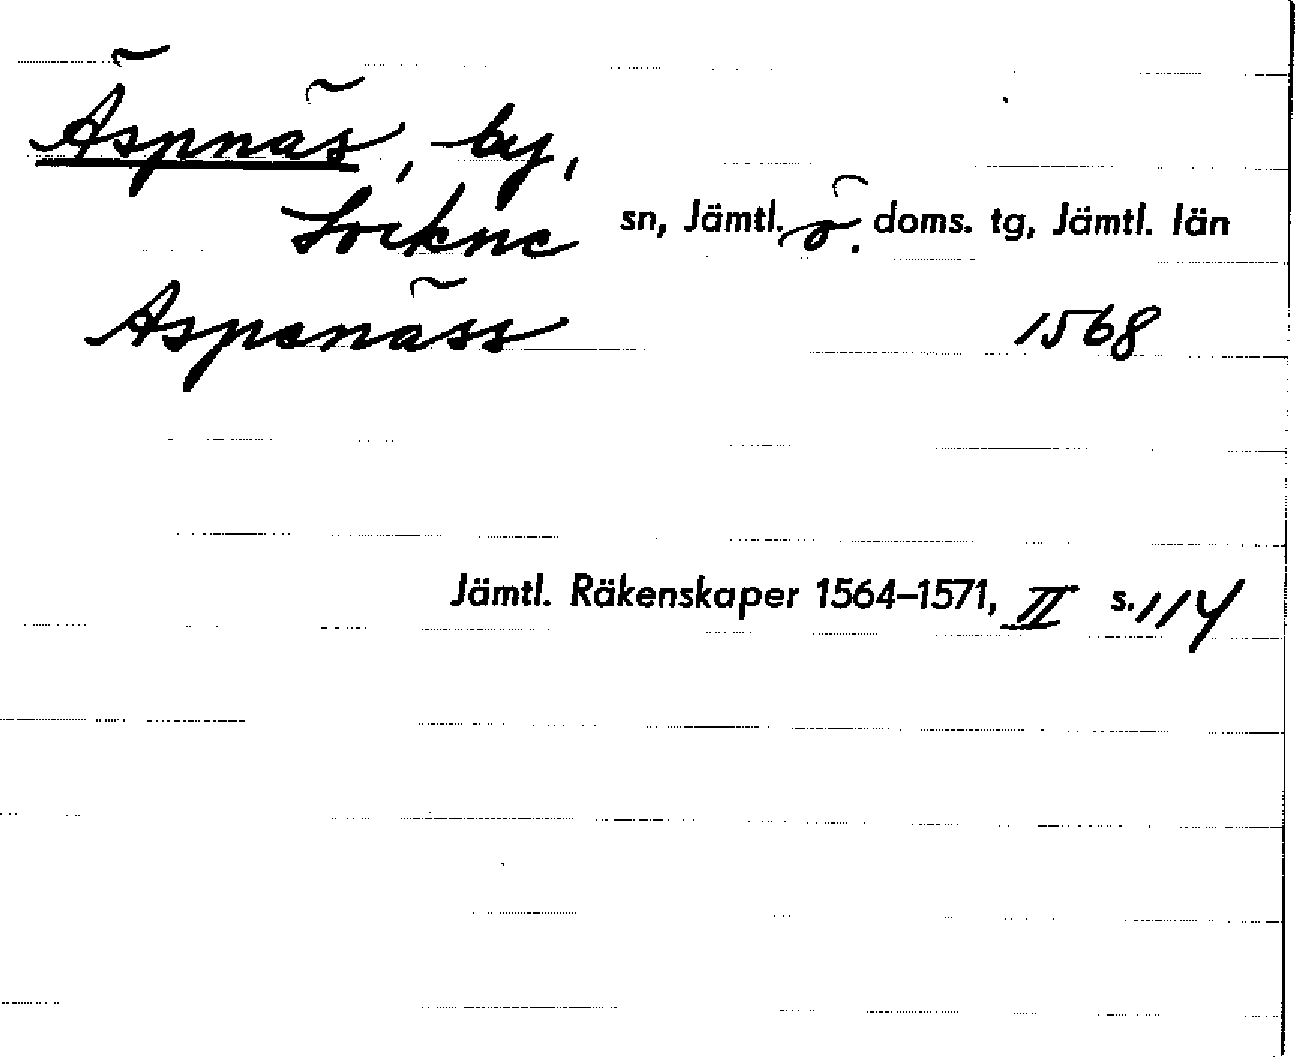 Äspnäs, by,
Lockne sn, Jämtl. ö. doms. tg, Jämtl. län
Aspenäss 1568
Jämtl. Räkenskaper 1564-1571, II s. 114